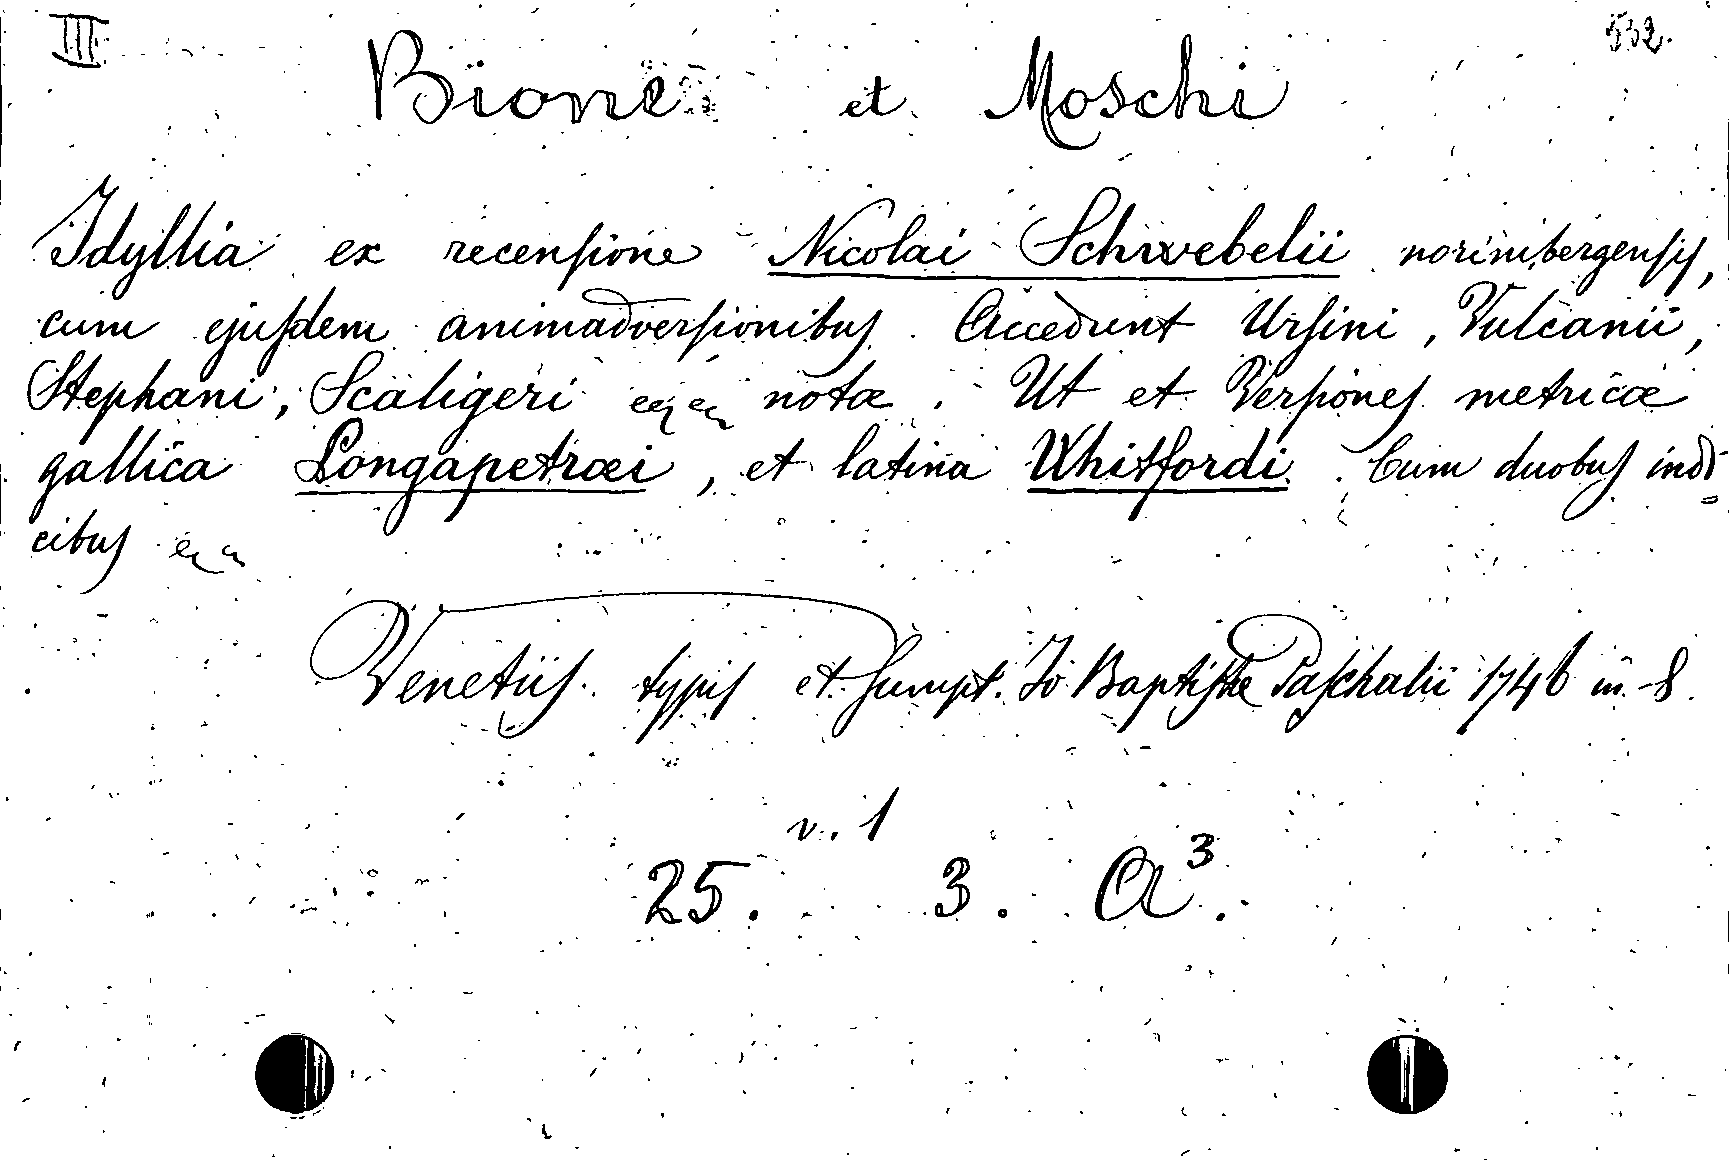 III 532.
Bione et Moschi
Idyllia ex recensione Nicolai Schwebelii norimbergensis,
cum ejusdem animadversionibus. Accedunt Ursini, Vulcanii,
Stephani, Scaligeri notæ. Ut et Versiones metricæ
gallica Longapetræi, et latina Whitfordi. Cum duobus indi=
cibus
Venetiis typis et sumpt. Jo Baptistæ Paschalii 1746 in 8.
v. 1
25. 3. A³.